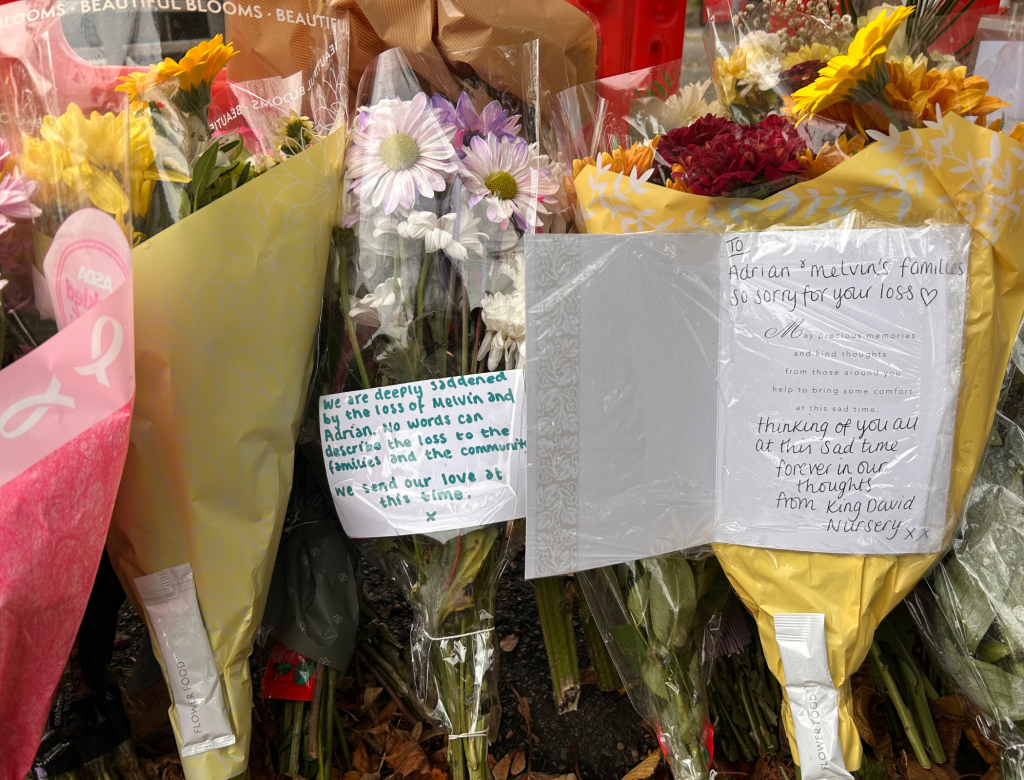 BLOOMS · BEAUTIFUL BLOOMS · BEAUTIFUL
BEAUTIFUL BLOOMS
ASDA
TO
Adrian & Melvin's families
So sorry for your loss ♡
May precious memories
and kind thoughts
from those around you
help to bring some comfort
at this sad time.
thinking of you all
at this sad time
forever in our
thoughts
from King David
Nursery x x
we are deeply saddened
by the loss of Melvin and
Adrian. No words can
describe the loss to the
families and the communit
we send our love at
this time.
x
FLOWER FOOD
FLOWER FOOD